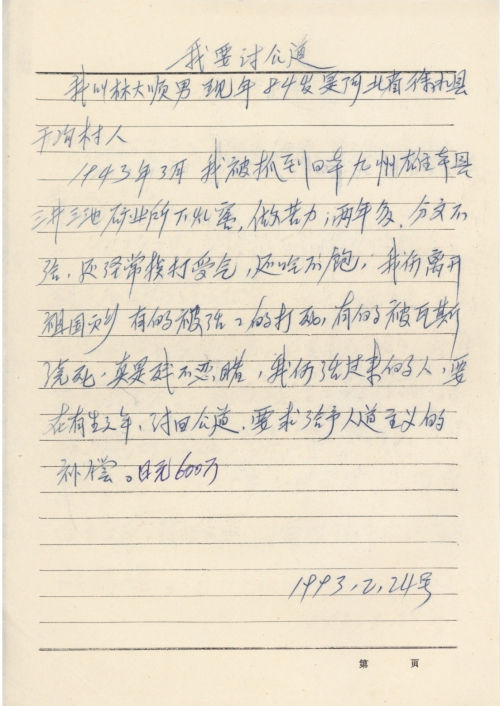 我要讨公道
我叫林大顺男 现年84岁是河北省徐水县
于沟村人
1943年3月 我被抓到日本九州 在本县
三井三池矿业所 做苦力,两年多,分文不
给,还经常挨打受气,还吃不饱,我们离开
祖国 有的被活活的打死,有的被瓦斯
烧死,真是残不忍睹,我们活过来的人,要
在有生之年,讨回公道,要求给予人道主义的
补偿。日元600万
1993.2.24号
第 页